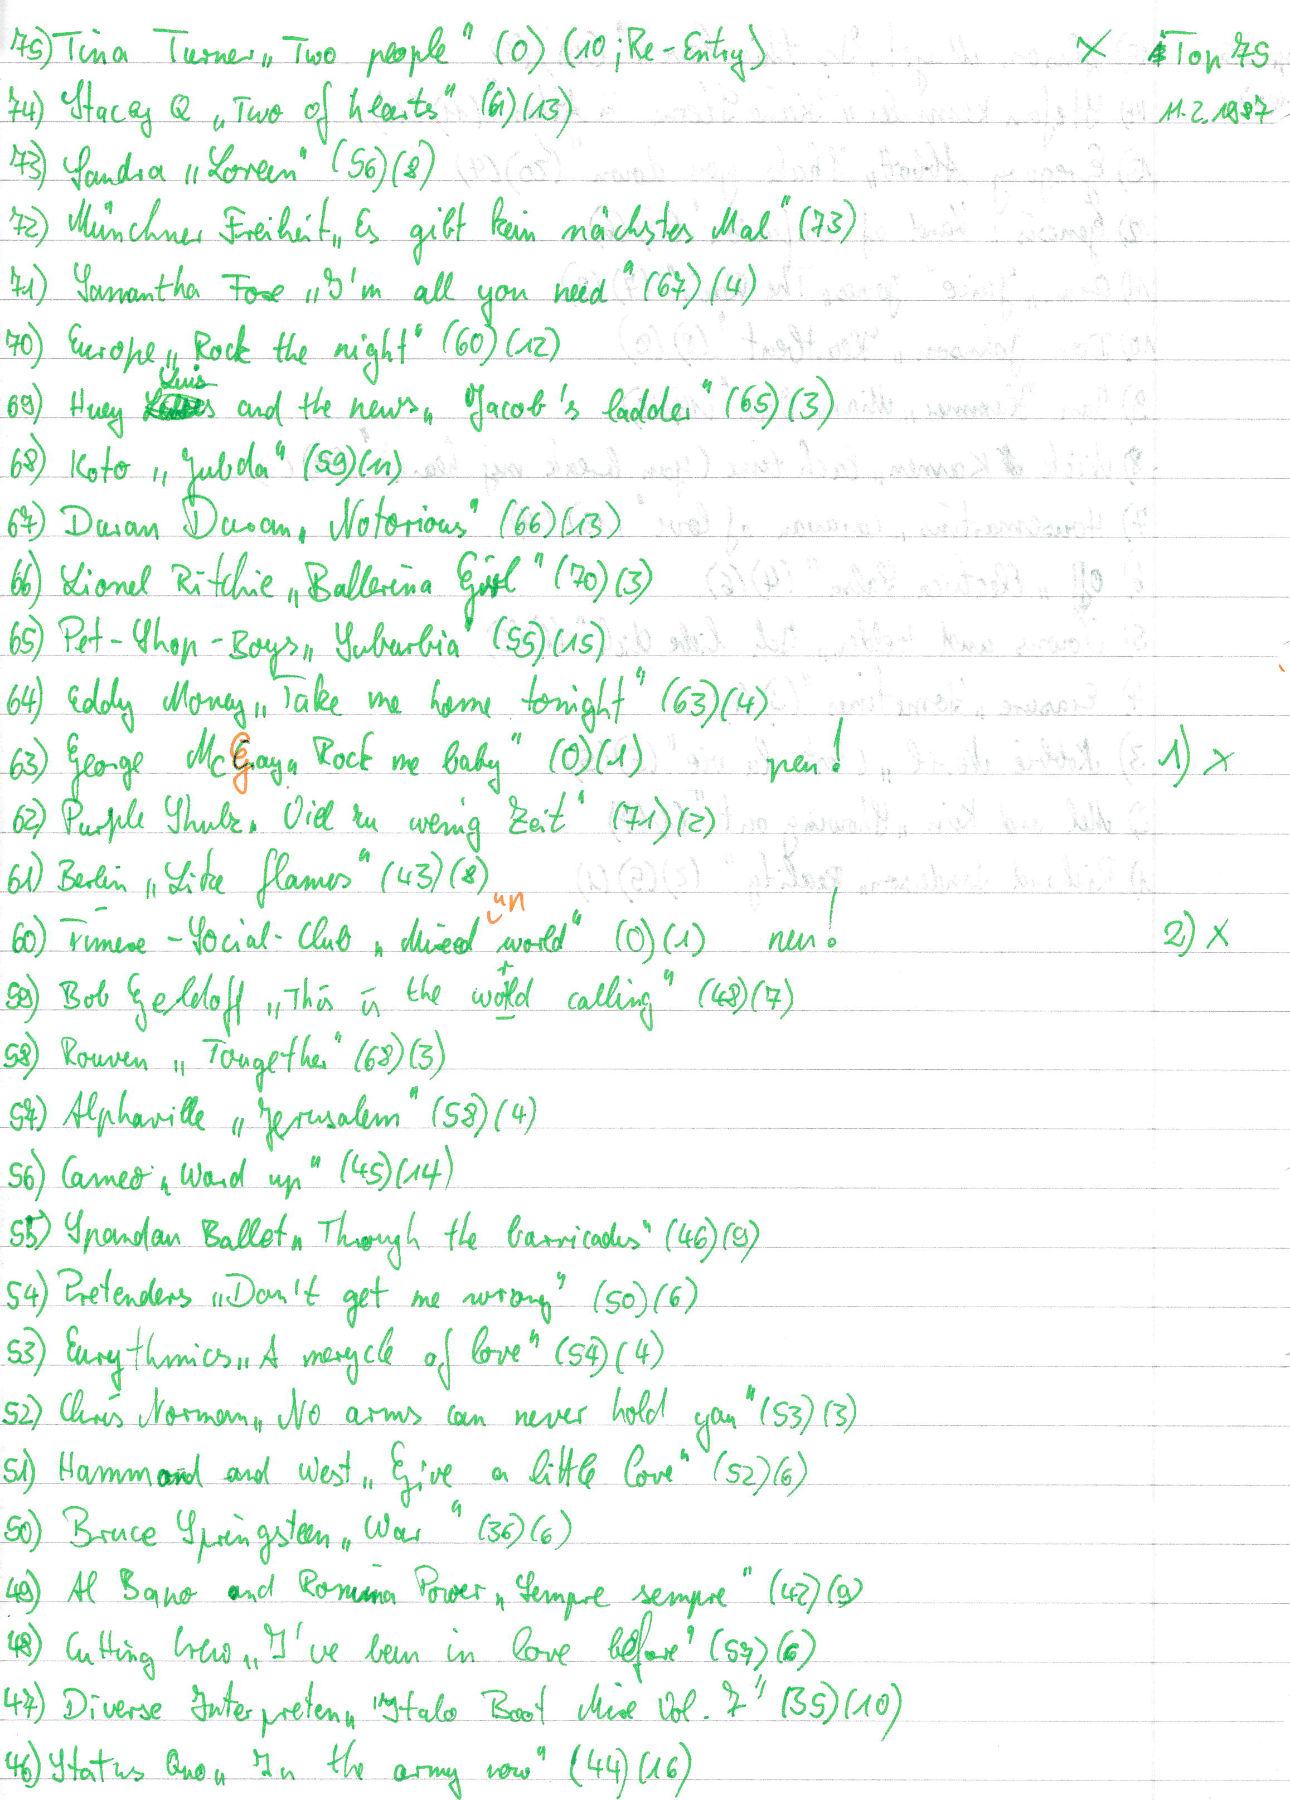 75) Tina Turner „Two people" (0) (10; Re-Entry) X Top 75
74) Stacey Q „Two of hearts" (61) (13) 11.2.1987
73) Sandra „Loreen" (56) (8)
72) Münchner Freiheit „Es gibt kein nächstes Mal" (73)
71) Samantha Fox „I'm all you need" (67) (4)
70) Europe „Rock the night" (60) (12)
69) Huey Luis and the news „Jacob's ladder" (65) (3)
68) Koto „Jabda" (59) (11)
67) Duran Duran „Notorious" (66) (13)
66) Lionel Ritchie „Ballerina Girl" (70) (3)
65) Pet-Shop-Boys „Suburbia" (55) (15)
64) Eddy Money „Take me home tonight" (63) (4)
63) George McGray „Rock me baby" (0) (1) neu! 1) X
62) Purple Shulz „Viel zu wenig Zeit" (71) (2)
61) Berlin „Like flames" (43) (8)
60) Timexe-Social-Club „Mixed un world" (0) (1) neu! 2) X
59) Bob Geldoff „This is the world calling" (48) (7)
58) Rouven „Tougether" (68) (3)
57) Alphaville „Jerusalem" (58) (4)
56) Cameo „Word up" (45) (14)
55) Spandau Ballet „Through the barricades" (46) (9)
54) Pretenders „Don't get me wrong" (50) (6)
53) Eurythmics „A merycle of love" (54) (4)
52) Chris Norman „No arms can never hold you" (53) (3)
51) Hammond and West „Give a little love" (52) (6)
50) Bruce Springsteen „War" (36) (6)
49) Al Bano and Romina Power „Sempre sempre" (42) (9)
48) Cutting Crew „I've been in love before" (57) (6)
47) Diverse Interpreten „Italo Boot Mix Vol. 7" (35) (10)
46) Status Quo „In the army now" (44) (16)